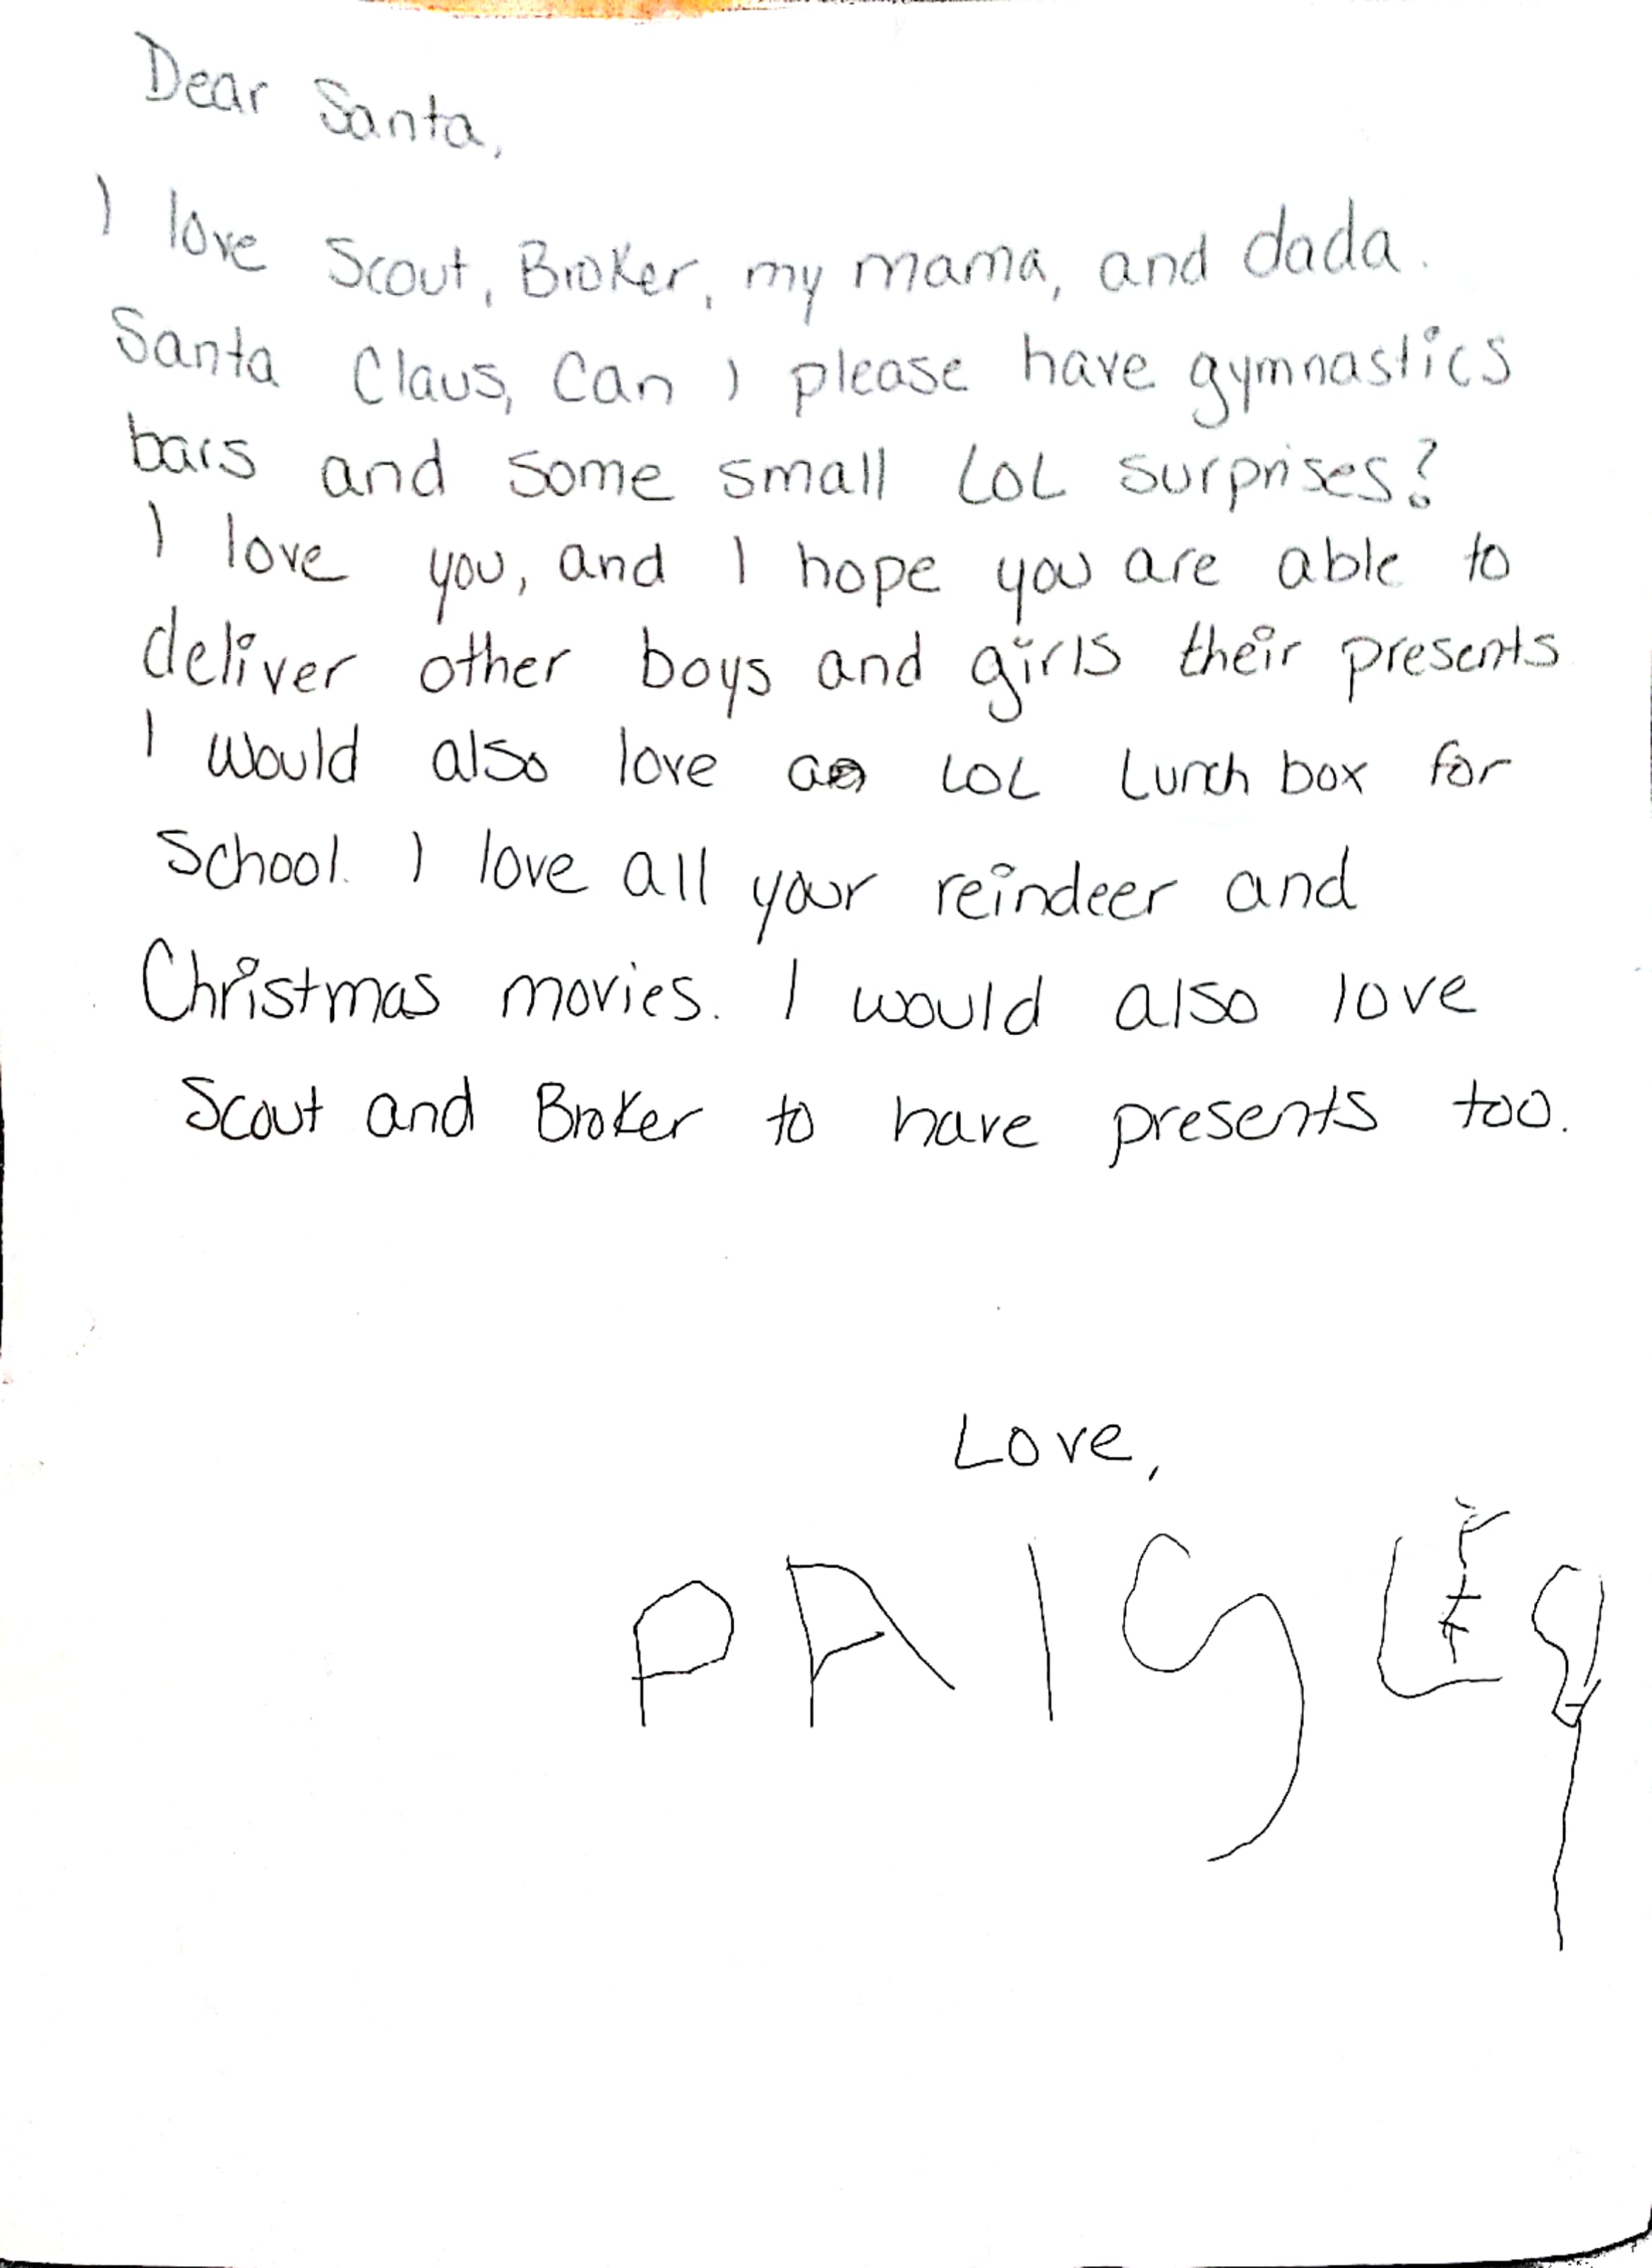 Dear Santa,
I love Scout, Broker, my mama, and dada.
Santa Claus, Can I please have gymnastics
bars and some small LOL surprises?
I love you, and I hope you are able to
deliver other boys and girls their presents
I would also love a LOL Lunch box for
School. I love all your reindeer and
Christmas movies. I would also love
Scout and Broker to have presents too.
Love,